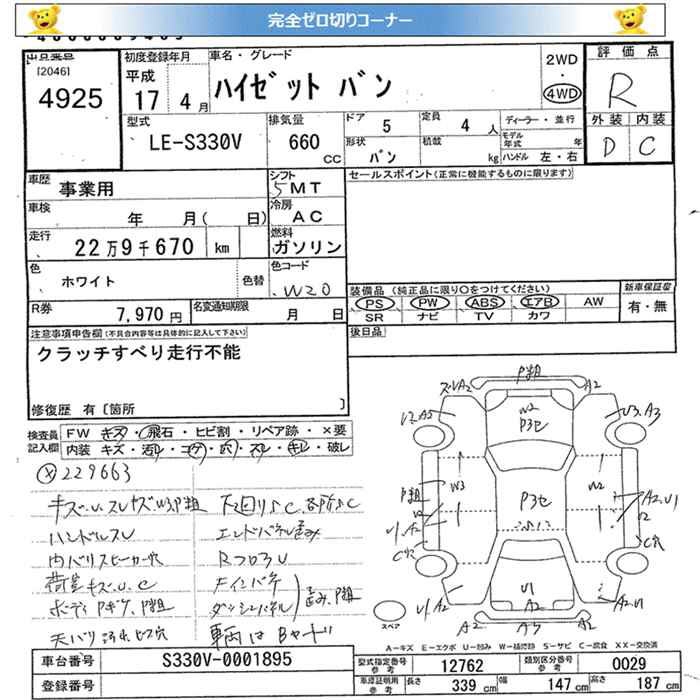 完全ゼロ切りコーナー
出品番号
[2046]
4925
初度登録年月
平成
17 4月
車名・グレード
ハイゼット バン
2WD
・
4WD
評価点
R
外装 内装
D C
型式
LE-S330V
排気量
660
CC
ドア
5
定員
4 人
形状
バン
積載
kg
ディーラー・並行
モデル
年式
年
ハンドル 左・右
車歴
事業用
シフト
5MT
車検
年 月( 日)
冷房
AC
走行
22万9千670 km
燃料
ガソリン
色
ホワイト
色替
色コード
W20
R券
7,970円
名変通知期限
月 日
セールスポイント(正常に機能するものに限ります)
装備品 (純正品に限り○をつけてください)
PS PW ABS エアB AW
SR ナビ TV カワ
新車保証書
有・無
後日品
注意事項申告欄(不具合内容等は具体的に記入して下さい)
クラッチすべり走行不能
修復歴 有〔箇所 〕
検査員
記入欄
FW キズ・飛石・ヒビ割・リペア跡・×要
内装 キズ・汚レ・コゲ・穴・スレ・キレ・破レ
229663
ハンドルスレ
内バリスピーカー穴
荷室キズ.U.C
天バリ汚れ.ビス穴
下回りS.C.各所S.C
エンドパネル歪み
RフロアU
メインパネ
ダッシュパネル
歪み.P組
車両はBヤード
P組
A2
A2
V3.A3
W2
P3セ
P組
W3
W2
P3セ
A2.U1
C穴
C穴
U1.A2
U1
A2
A2.U1
A2
A3
A2
スペア
A-キズ E-エクボ U-凹み W-補修跡 S-サビ C-腐食 XX-交換済
車台番号
S330V-0001895
登録番号
型式指定番号
参考
12762
類別区分番号
参考
0029
車庫証明用
参考
長さ 339 cm
幅 147 cm
高さ 187 cm